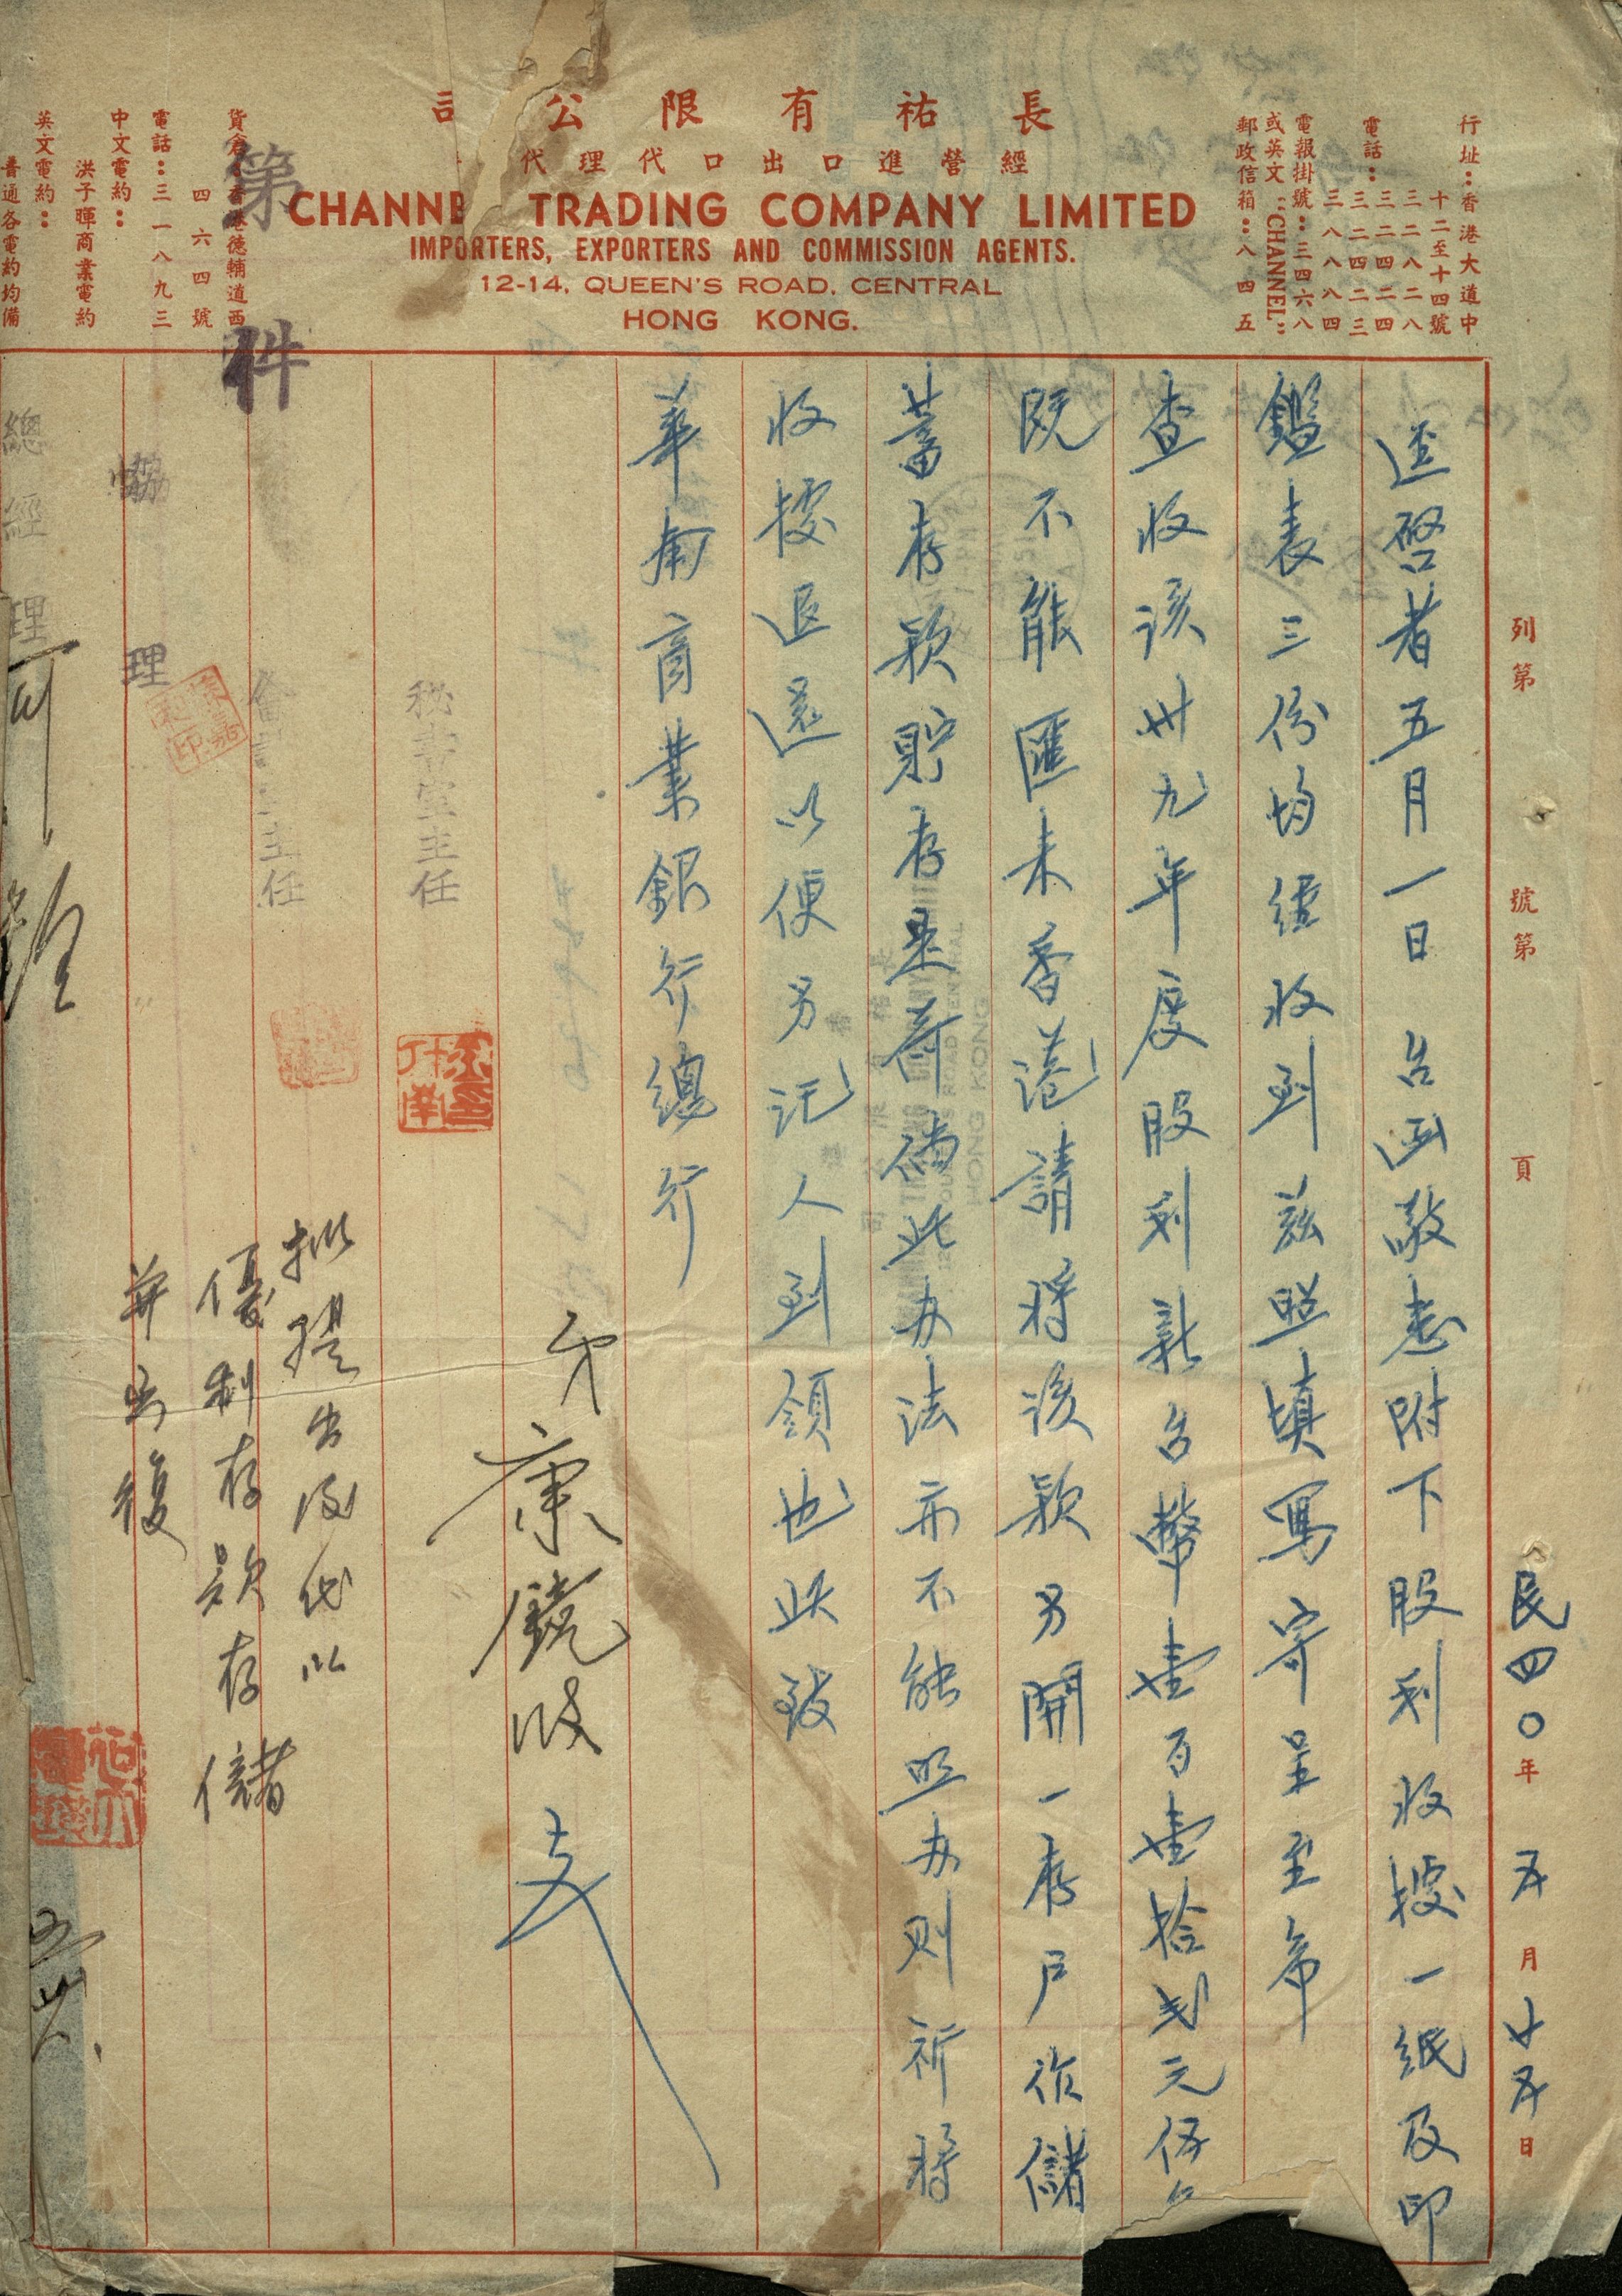 長祐有限公司
經營進口出口代理代
CHANNE TRADING COMPANY LIMITED
IMPORTERS, EXPORTERS AND COMMISSION AGENTS.
12-14, QUEEN'S ROAD, CENTRAL
HONG KONG.
行址：香港大道中
十二至十四號
電話：
三二八二八
三二四二四
三二四二三
三八八八四
電報掛號：三四六八
或英文"CHANNEL"
郵政信箱：八四五
貨倉：香港德輔道西
四六四號
電話：三一八九三
中文電約：
洪子暉商業電約
英文電約：
普通各電約均備
第 件
列第 號第 頁
民四〇年五月廿五日
逕啓者五月一日台函敬悉附下股利收據一紙及印
鑑表三份均經收到茲照填寫寄呈至希
查收該卅九年度股利新台幣壹百壹拾弍元伍
既不能匯來香港請將該款另開一存戶作儲
蓄存款貯存是荷倘此办法亦不能照办則祈將
收據退還以便另託人到領也此致
華南商業銀行總行
弟康鏡波
秘書室主任
會計主任
協理
總經理
批擬出後代以
優利存款存儲
并函復